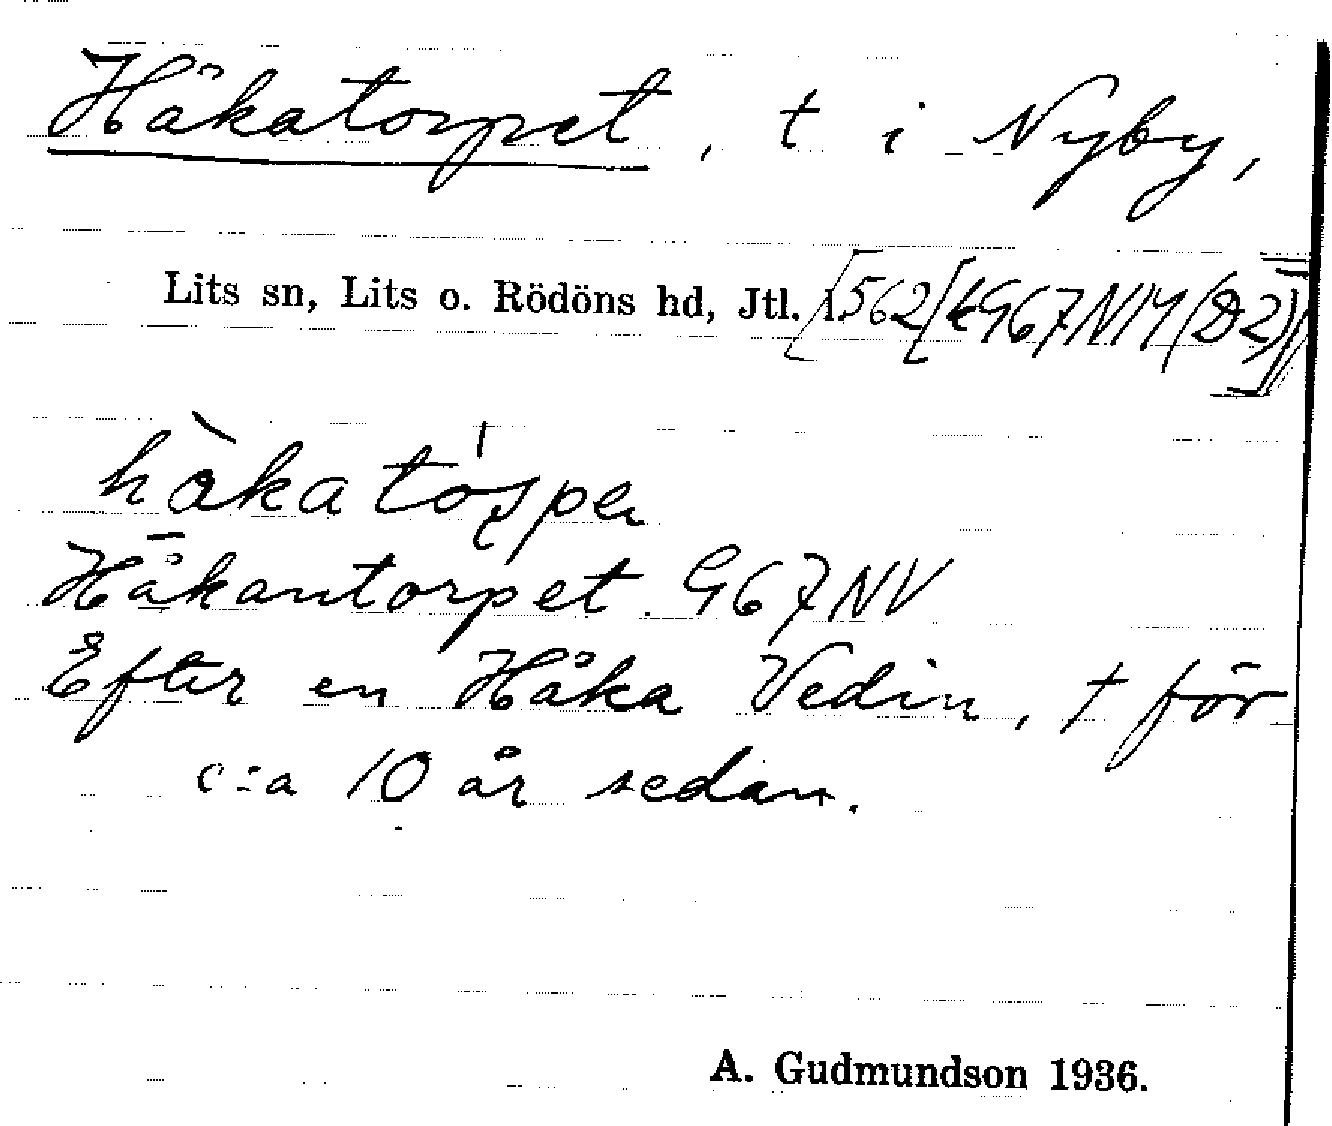 Håkatorpet, t i Nyby,
Lits sn, Lits o. Rödöns hd, Jtl.
Håkantorpet G67NV
Efter en Håka Vedin, † för
c:a 10 år sedan.
A. Gudmundson 1936.